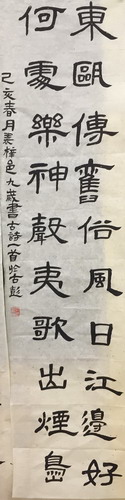 東甌傳舊俗風日江邊好
何處樂神聲夷歌出煙島
己亥春月姜樺邑九歲書古詩一首於古彭